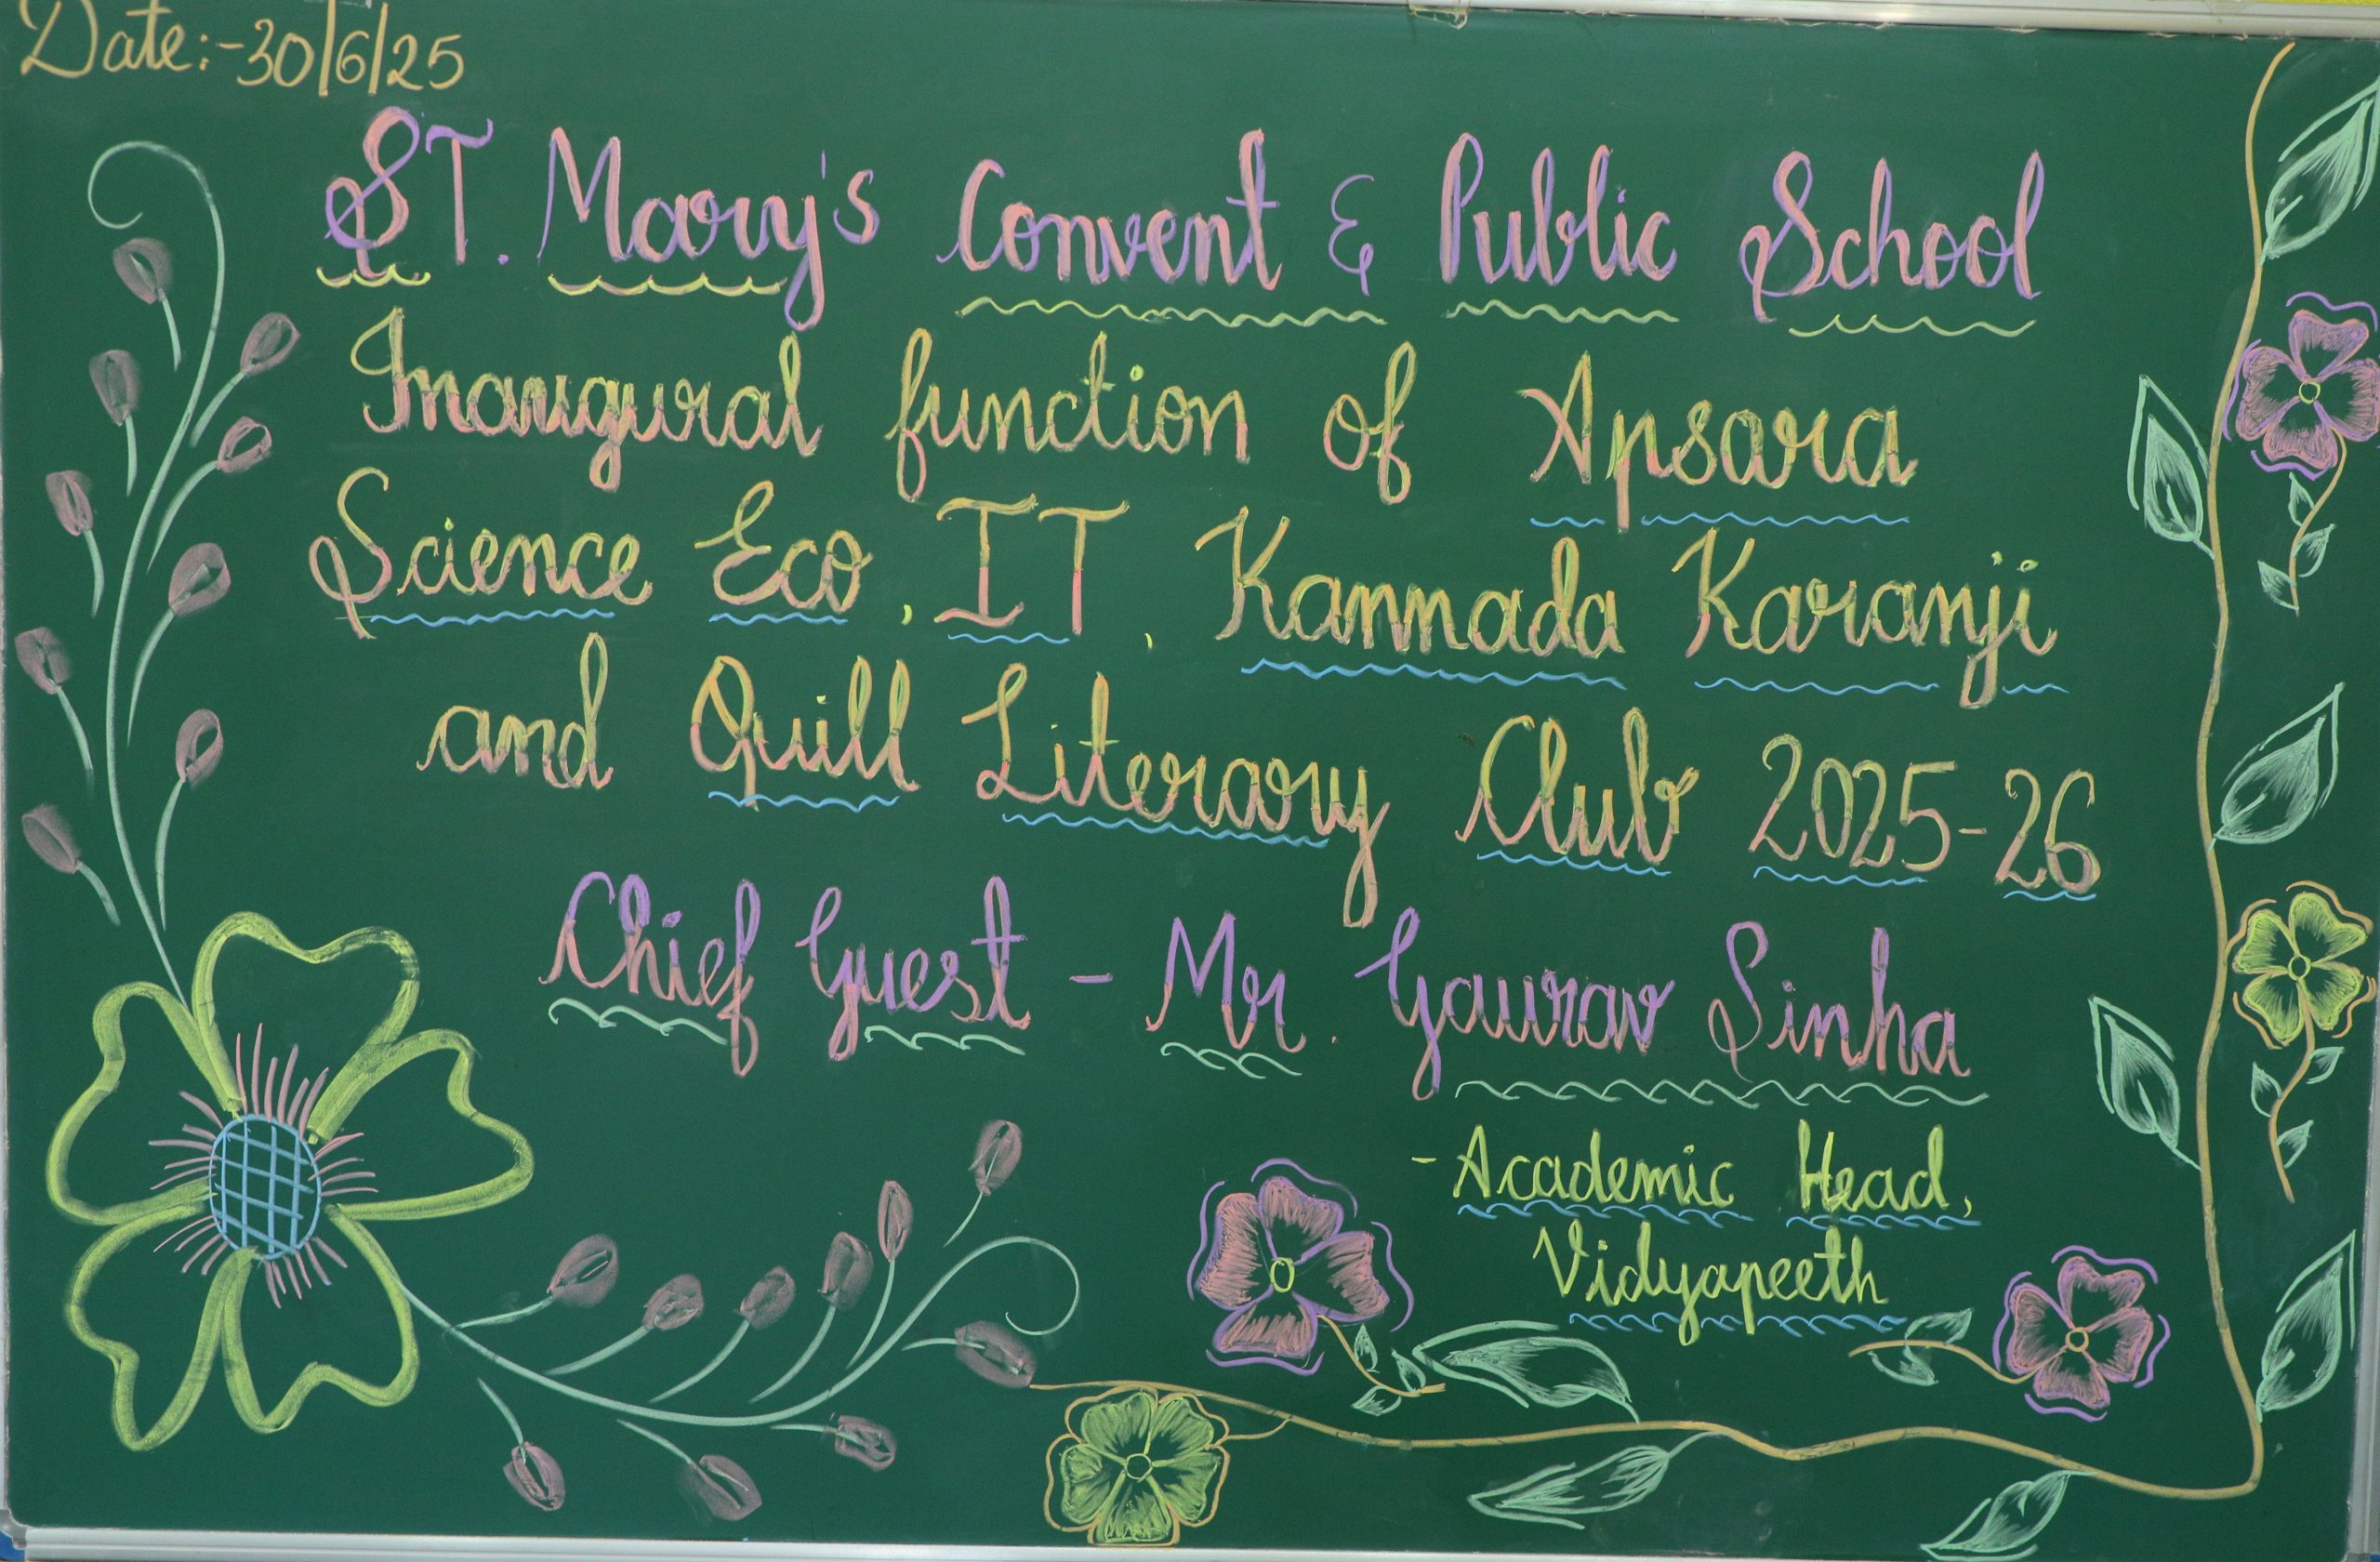 Date:-30/6/25
ST. Mary's Convent & Public School
Inaugural function of Apsara
Science Eco, IT, Kannada Karanji
and Quill Literary Club 2025-26
Chief Guest - Mr. Gaurav Sinha
- Academic Head,
Vidyapeeth